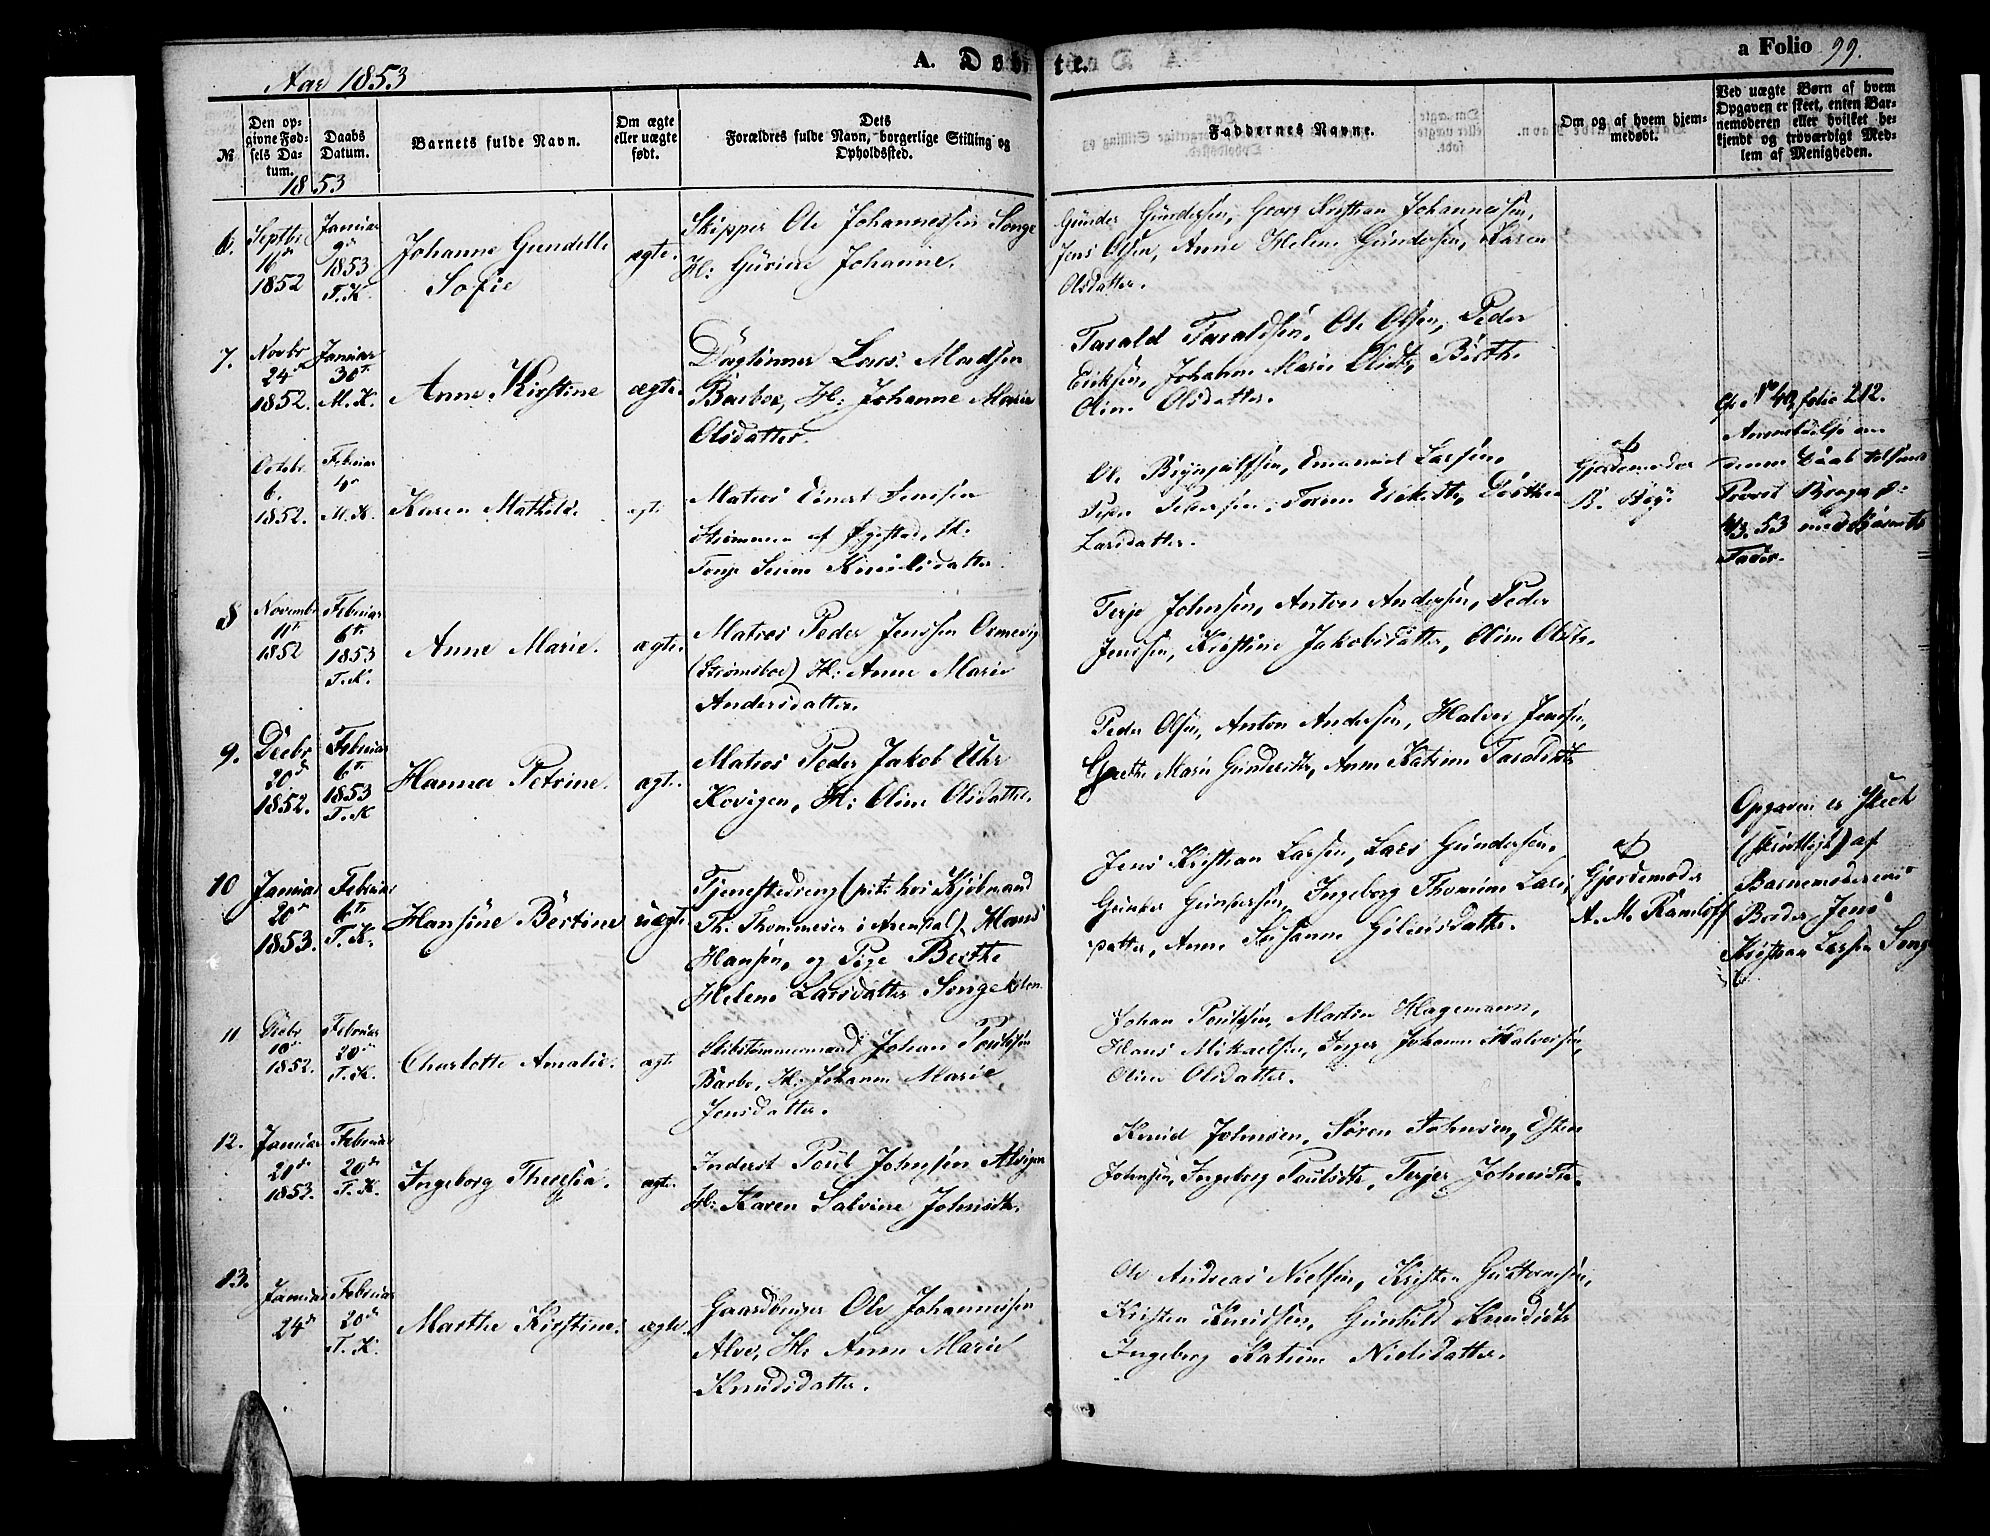 A. Døbte.
a Folio 99.
Aar 1853
No
Den opgivne Fødsels Datum.
Daabs Datum.
Barnets fulde Navn.
Om ægte eller uægte født.
Dets Forældres fulde Navn, borgerlige Stilling og Opholdssted.
Faddernes Navne.
Om og af hvem hjemmedøbt.
Ved uægte Børn af hvem Opgaven er skeet, enten Barnemoderen eller hvilket bekjendt og troværdigt Medlem af Menigheden.
1853
6.
Septbr
16de
1852
Januar
9de
1853
T. K.
Johanne Gundelle
Sofie
ægte.
Skipper Ole Johannessen Songe
H: Gurine Johanne.
Gunder Gundersen, Georg Kristian Johannessen,
Jens Olsen, Anne Helene Gundersen, Karen
Olsdatter.
7.
Novbr
24de
1852.
Januar
30te
M. K.
Anne Kirstine
ægte.
Lars Madsen
Barboe, H: Johanne Marie
Olsdatter.
Tarald Taraldsen, Ole Olsen, Peder
Eriksen, Johanne Marie Olsdt, Birthe
Oline Olsdatter.
Octobr
6.
1852.
Februar
4de
M. K.
Karen Mathilde
ægte
Matros Einert Jenssen
Strømmen af Øyestad, H:
Tonje Serine Knudsdatter.
Ole Brynjulfsen, Emanuel Larsen,
Peder Pedersen, Eriksdt, Dorthe
Larsdatter.
af
Gjordemoder
B. Bøj.
Cf. No 40, folio 212.
Anmeldelse om
denne Daab tilsendt
Provst
4/3. 53 med Barnets
Fader.
8
Novembr
11te
1852
Februar
6te
1853
T. K.
Anne Marie.
ægte.
Matros Peder Jenssen Ormevig
(Strømsboe) H: Anne Marie
Andersdatter.
Terje Johnsen, Anton Andersen, Peder
Jenssen, Kirstine Jakobsdatter, Oline Olsdtr.
9.
Decbr
20de
1852.
Februar
6te
1853
T. K
Hanna Petrine.
ægte.
Matros Peder Jakob Uhr
Kovigen, H: Oline Olsdatter.
Peder Olsen, Anton Andersen, Halvor Jenssen,
Grethe Marie Gundersdtr, Anne Katrine Taraldsdtr
10
Januar
20de
1853.
Februar
6te
T. K.
Hansine Bertine
uægte
Tjenestedreng (pt: hos Kjøbmand
Th. Thommesen i Arendal) Hans
Hansen, og Pige Berthe
Helene Larsdatter Songekilen.
Jens Kristian Larsen, Lars Gundersen,
Gunder Gundersen, Ingeborg Thomine Lars
datter, Anne Susanne
af
Gjordemoder
A. M. Ramløff
Opgaven er skeet
(skriftligt) af
Barnemoderens
Broder Jens
Kristian Larsen Songe
11
Decbr
10de
1852.
Februar
20de
T. K.
Charlotte Amalie.
ægte
Skibstømmermand Johan Poulssen
Barbo, H: Johanne Marie
Jensdatter.
Johan Poulssen, Martin Hagemann,
Hans Mikaelsen, Inger Johanne Halvorsen,
Oline Olsdatter.
12.
Januar
20de
1853.
Februar
20de
T. K.
Ingeborg Theresia.
ægte.
Inderst Poul Johnsen Alvigen
H: Karen Salvine Johnsdtr.
Knud Johnsen, Søren Johnsen, Esten
Johnsen, Ingeborg Paulsdtr, Terjer Johnsdtr.
13.
Januar
24de
Februar
20de
T. K.
Marthe Kirstine.
ægte.
Gaardbruger Ole Johannessen
Alve, H: Anne Marie
Knudsdatter.
Ole Andreas Nielsen, Kristen Gustavesen,
Kristen Knudsen, Gunhild Knudsdtr
Ingeborg Katrine Nielsdatter.